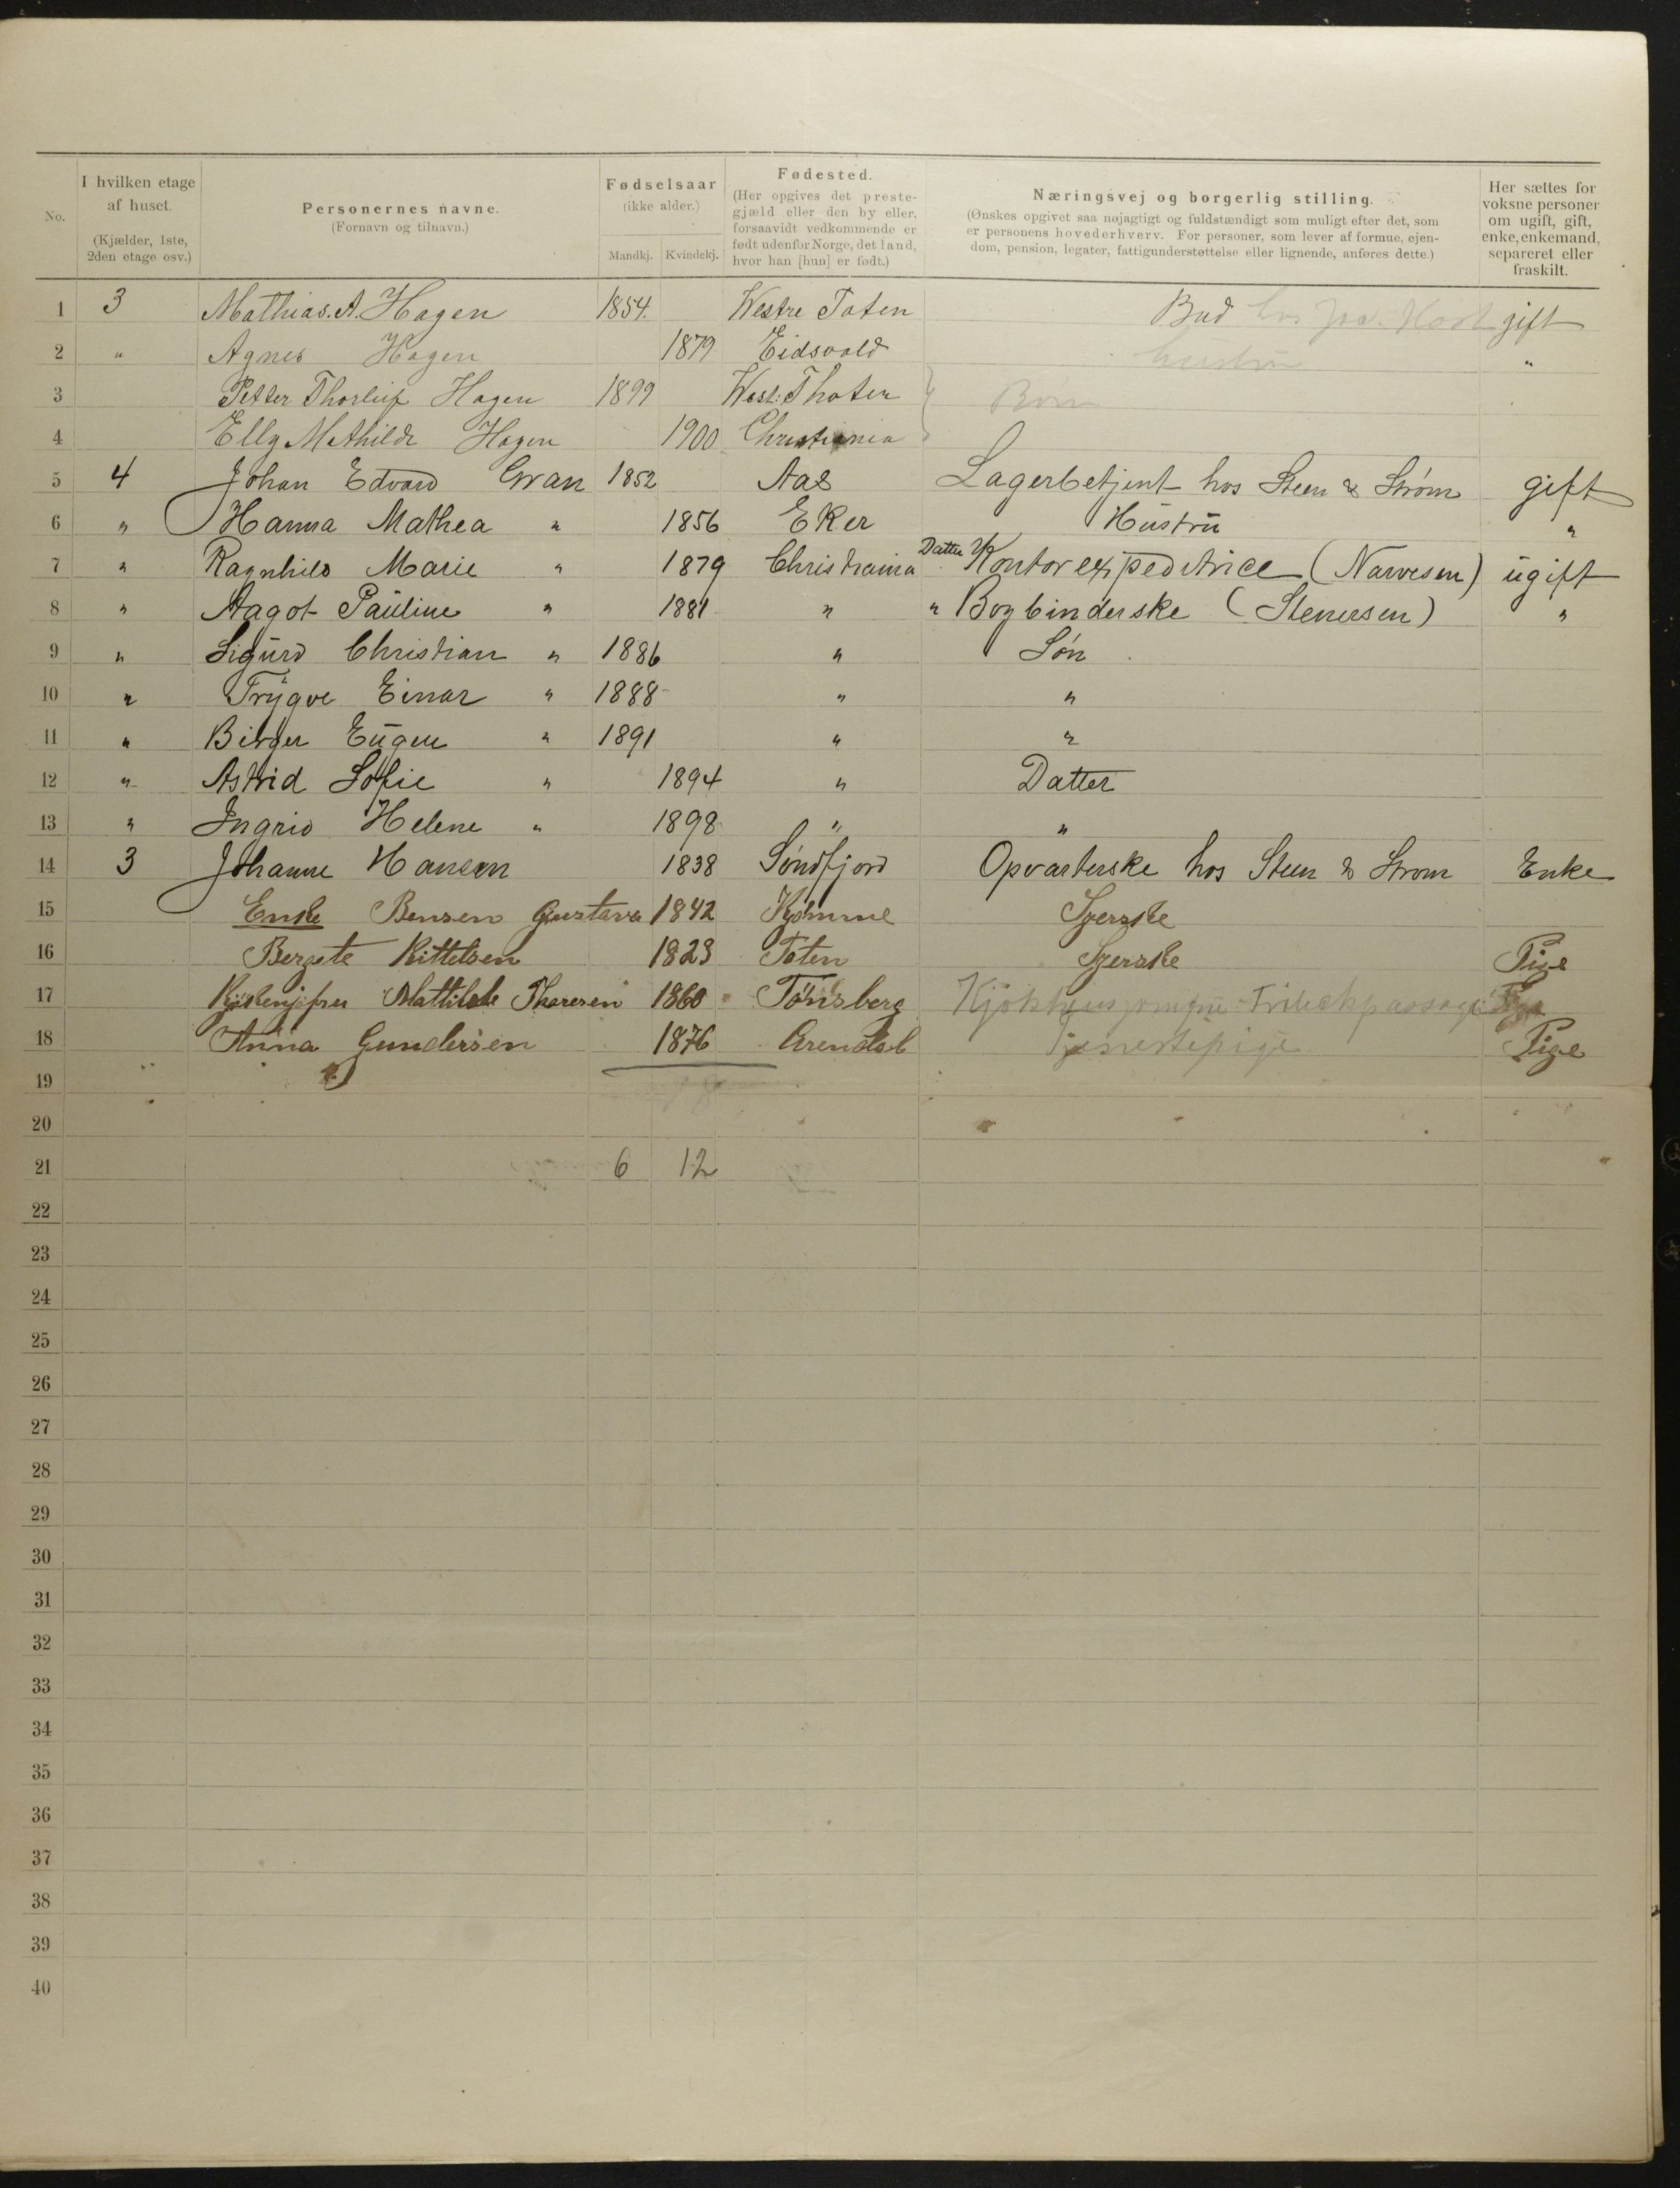 No.
I hvilken etage
af huset.
(Kjælder, 1ste,
2den etage osv.)
Personernes navne.
(Fornavn og tilnavn.)
Fødselsaar
(ikke alder.)
Mandkj. Kvindekj.
Fødested.
(Her opgives det preste-
gjæld eller den by eller,
forsaavidt vedkommende er
født udenfor Norge, det land,
hvor han [hun] er født.)
Næringsvej og borgerlig stilling.
(Ønskes opgivet saa nøjagtigt og fuldstændigt som muligt efter det, som
er personens hovederhverv. For personer, som lever af formue, ejen-
dom, pension, legater, fattigunderstøttelse eller lignende, anføres dette.)
Her sættes for
voksne personer
om ugift, gift,
enke, enkemand,
separeret eller
fraskilt.
1 3 Mathias. A. Hagen 1854. Westre Toten Bud hos gift
2 " Agnes Hagen 1879 Eidsvold Hustru "
3 Petter Thorleif Hagen 1899 West: Thoten } Børn
4 Elly Mathilde Hagen 1900 Christiania
5 4 Johan Edvard Gran 1852 Aas Lagerbetjent hos Steen & Strøm gift
6 " Hanna Mathea " 1856 Eker Hustru "
7 " Ragnhild Marie " 1879 Christiania Datter Kontorexpeditrice (Narvesen) ugift
8 " Aagot Pauline " 1881 " " Bogbinderske (Stenersen) "
9 " Sigurd Christian " 1886 " Søn
10 " Trygve Einar " 1888 " "
11 " Birger Eugen " 1891 " "
12 " Astrid Sofie " 1894 " Datter
13 " Ingrid Helene " 1898 " "
14 3 Johanne Hansen 1838 Søndfjord Opvarterske hos Steen & Strøm Enke
15 Enke Bensen Gustava 1842 Syerske
16 Bergete Kittelsen 1823 Toten Syerske Pige
17 Mathilde Thoresen 1860 Tønsberg
18 Anna Gundersen 1876 Arendal Tjenestepige Pige
19
20
21 6 12
22
23
24
25
26
27
28
29
30
31
32
33
34
35
36
37
38
39
40